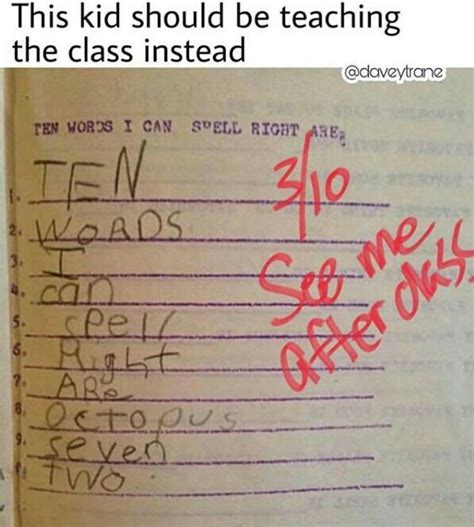 This kid should be teaching
the class instead
@daveytrane
TEN WORDS I CAN SPELL RIGHT ARE:
3/10
See me
after class
1. TEN
2. WORDS
3. I
4. can
5. spell
6. Right
7. ARe
8. OCTOPUS
9. seven
TWO